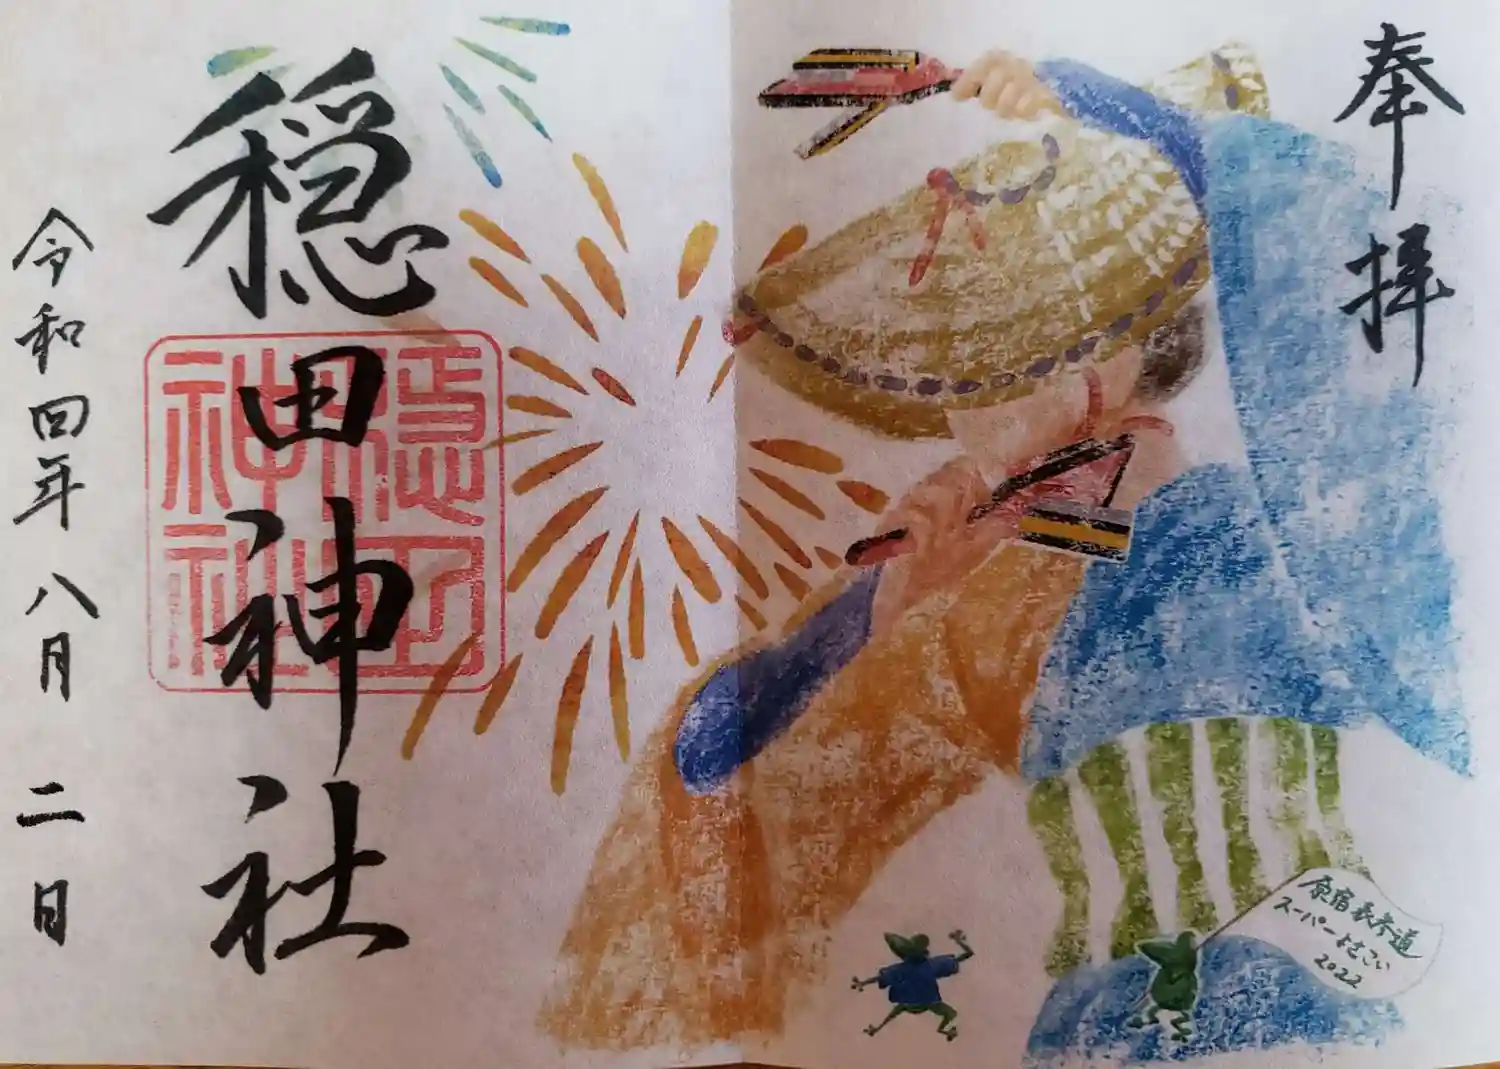 奉拝
穏田神社
穏田
神社
令和四年八月二日
原宿表参道
スーパーよさこい
2022